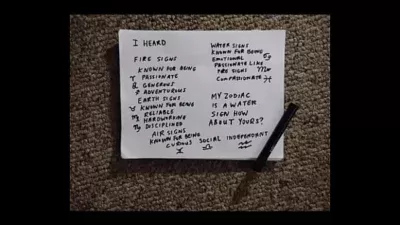 I HEARD
FIRE SIGNS
KNOWN FOR BEING
♈ PASSIONATE
♌ GENEROUS
♐ ADVENTUROUS
EARTH SIGNS
♉ KNOWN FOR BEING
RELIABLE
♍ HARDWORKING
♑ DISCIPLINED
AIR SIGNS
KNOWN FOR BEING
CURIOUS SOCIAL INDEPENDANT
♊ ♎ ♒
WATER SIGNS
KNOWN FOR BEING
EMOTIONAL ♋
PASSIONATE LIKE
FIRE SIGNS ♏
COMPASSIONATE ♓
MY ZODIAC
IS A WATER
SIGN HOW
ABOUT YOURS?